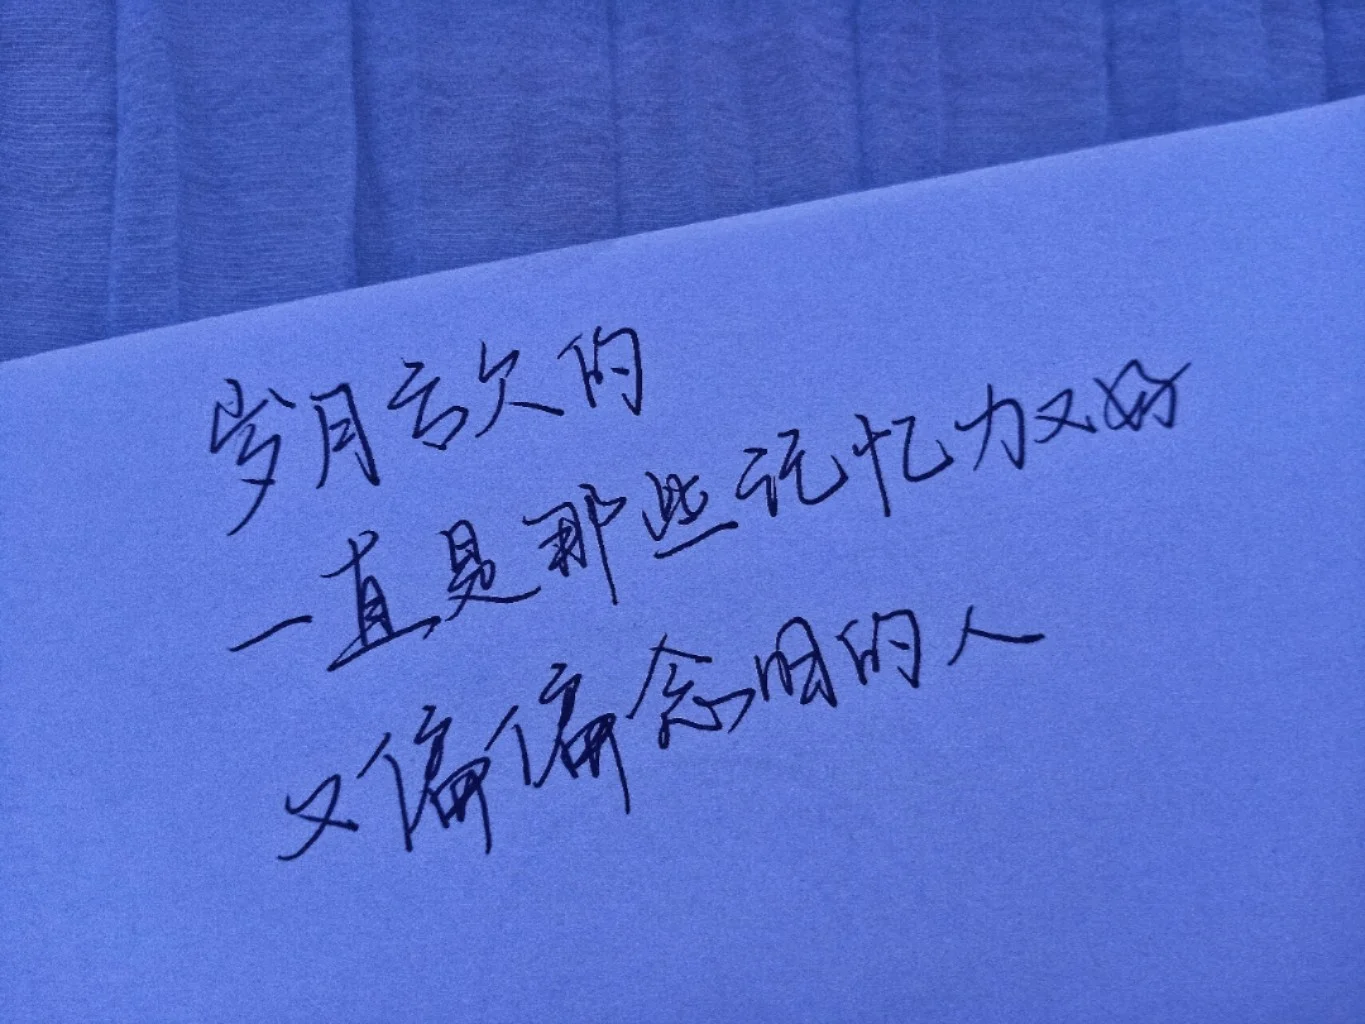 岁月亏欠的
一直是那些记忆力又好
又偏偏念旧的人